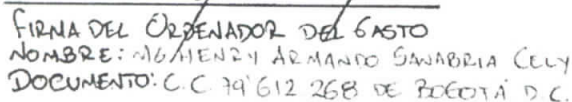 FIRMA DEL ORDENADOR DEL GASTO
NOMBRE: MG/HENRY ARMANDO SANABRIA CELY
DOCUMENTO: C.C 79'612 268 DE BOGOTÁ D.C.